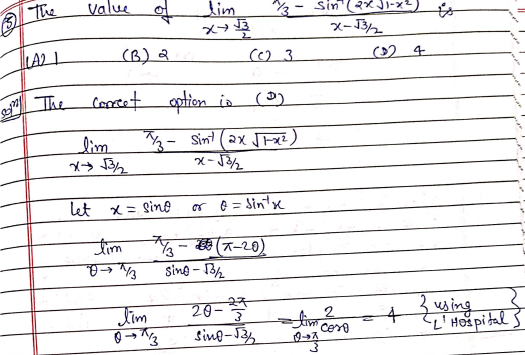 (5) The value of lim x→√3/2 π/3 - sin⁻¹(2x√1-x²) / x-√3/2 is
(A) 1 (B) 2 (C) 3 (D) 4
The correct option is (D)
lim x→√3/2 π/3 - sin⁻¹(2x√1-x²) / x-√3/2
let x = sinθ or θ = sin⁻¹x
lim θ→π/3 π/3 - (π-2θ) / sinθ-√3/2
lim θ→π/3 2θ - 2π/3 / sinθ-√3/2 = lim θ→π/3 2/cosθ = 4 {using L' Hospital}